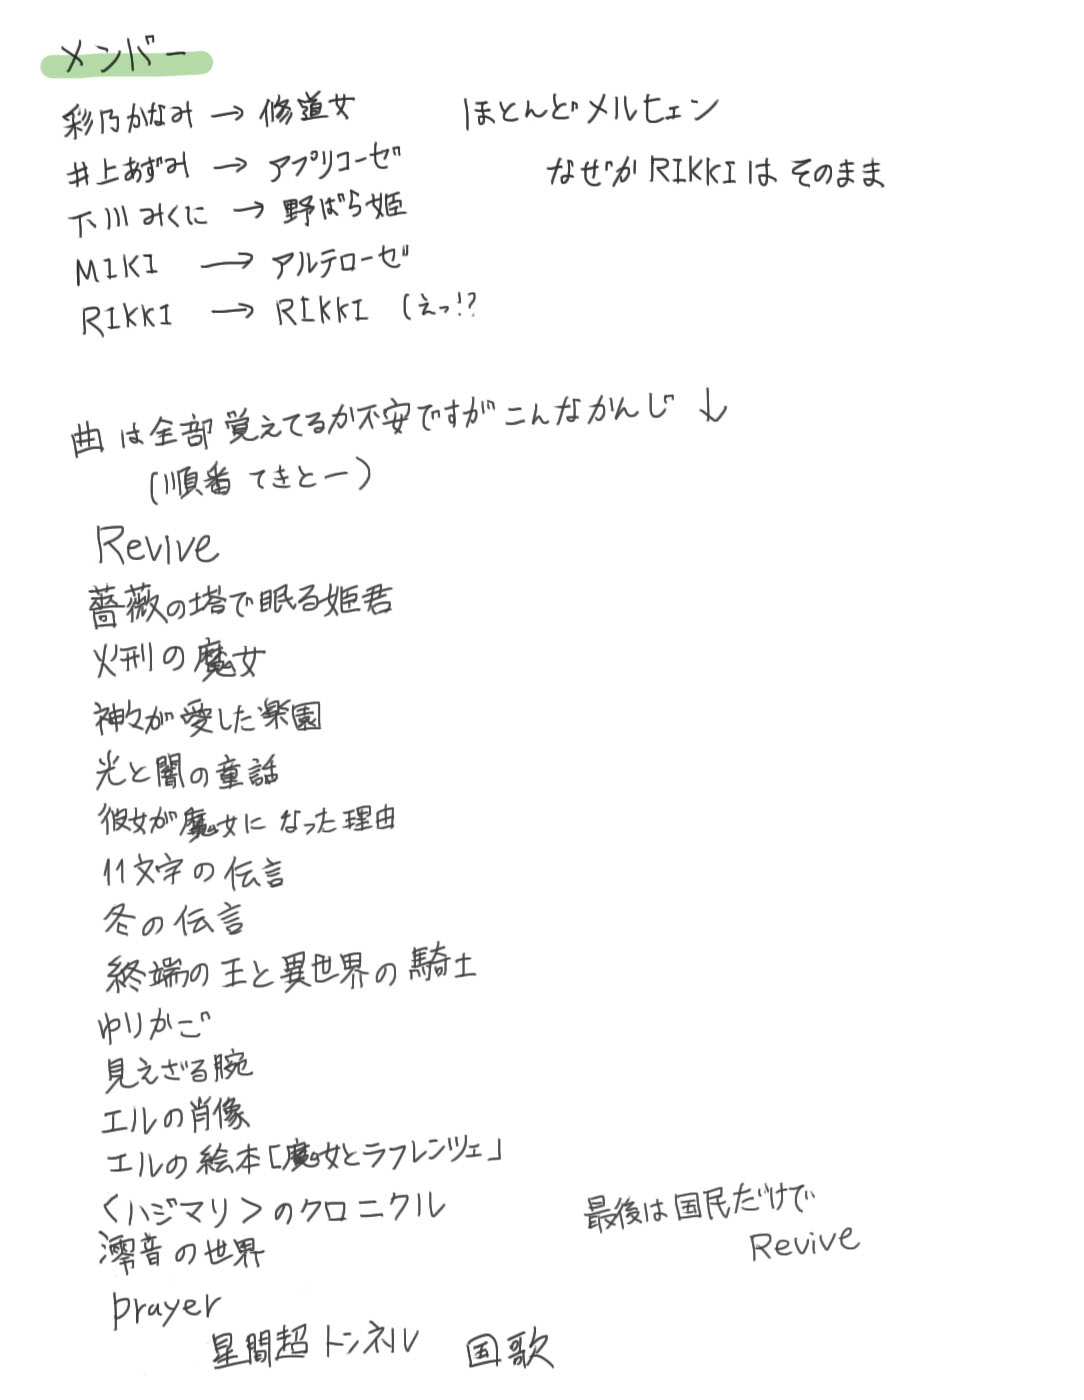 メンバー
彩乃かなみ → 修道女
井上あずみ → アプリコーゼ
下川みくに → 野ばら姫
MIKI → アルテローゼ
RIKKI → RIKKI (えっ!?
ほとんどメルヒェン
なぜか RIKKI は そのまま
曲は全部覚えてるか不安ですがこんなかんじ ↓
(順番 てきとー)
Revive
薔薇の塔で眠る姫君
火刑の魔女
神々が愛した楽園
光と闇の童話
彼女が魔女になった理由
11文字の伝言
冬の伝言
終端の王と異世界の騎士
ゆりかご
見えざる腕
エルの肖像
エルの絵本「魔女とラフレンツェ」
<ハジマリ>のクロニクル
澪音の世界
prayer
星間超トンネル 国歌
最後は国民だけで
Revive